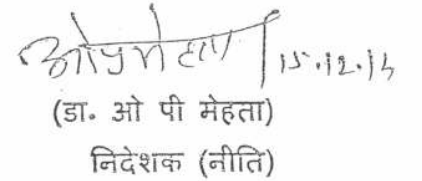 ओ पी मेहता 15.12.14
(डा॰ ओ पी मेहता)
निदेशक (नीति)